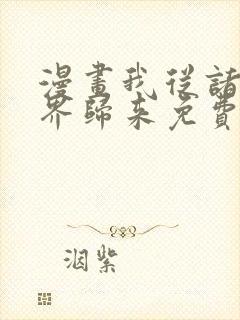 漫畫我從諸
界歸來免費
洇紫